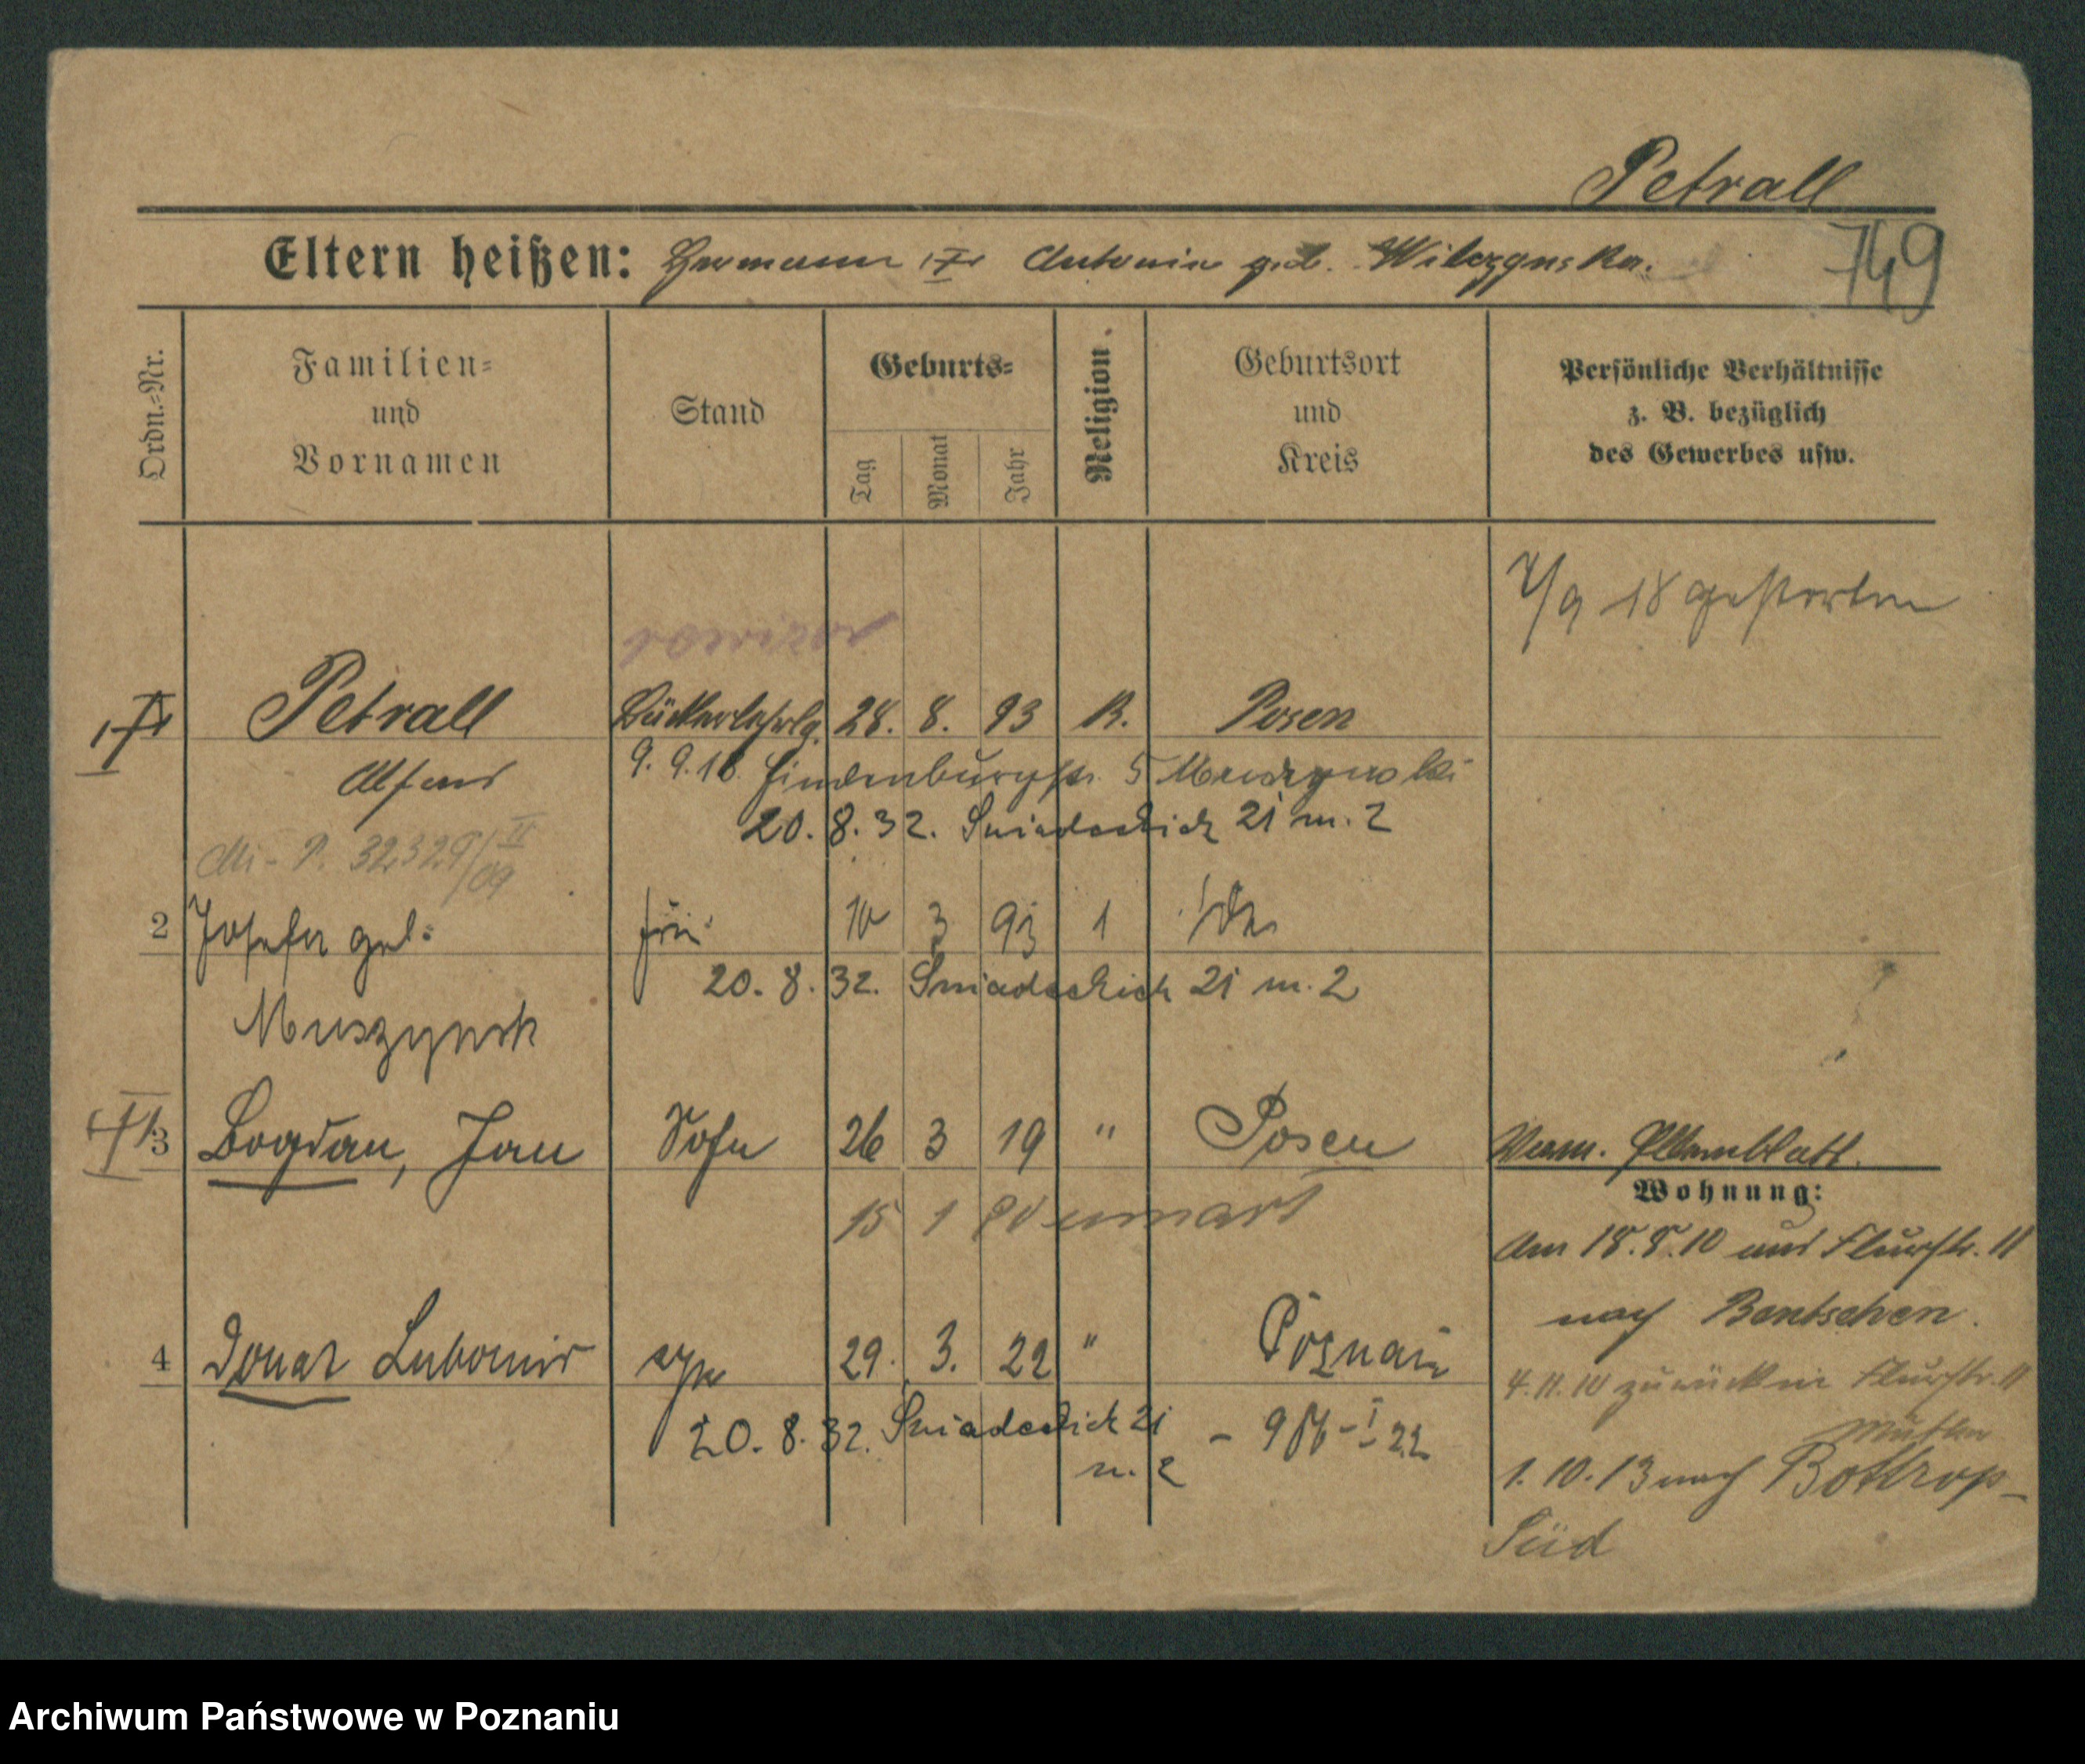 Petrall
Eltern heißen: Hermann Antonie geb. Wilczynska.
749
Ordn.-Nr.
Familien-
und
Vornamen
Stand
Geburts-
Tag
Monat
Jahr
Religion.
Geburtsort
und
Kreis
Persönliche Verhältnisse
z. B. bezüglich
des Gewerbes usw.
18 gestorben
rewizor
Petrall 28. 8. 93 R. Posen
9. 9. 18. Hindenburgstr. 5
20. 8. 32. Sniadeckich 21 m. 2
32329/II 09
2 Josefa geb. 10 3 93 1
20. 8. 32. Sniadeckich 21 m. 2
Muszynsk
3 Bogdan, Jan Sohn 26 3 19 " Posen
Wohnung:
15 1
Am 18.8.10 aus Flurstr. 11
nach Bentschen.
4 Lubomir syn 29. 3. 22 " Poznań
4.11.10 zurück Flurstr. 11
20. 8. 32. Sniadeckich 21
m. 2
Mutter
1. 10. 13 nach Bottrop-
Süd
Archiwum Państwowe w Poznaniu